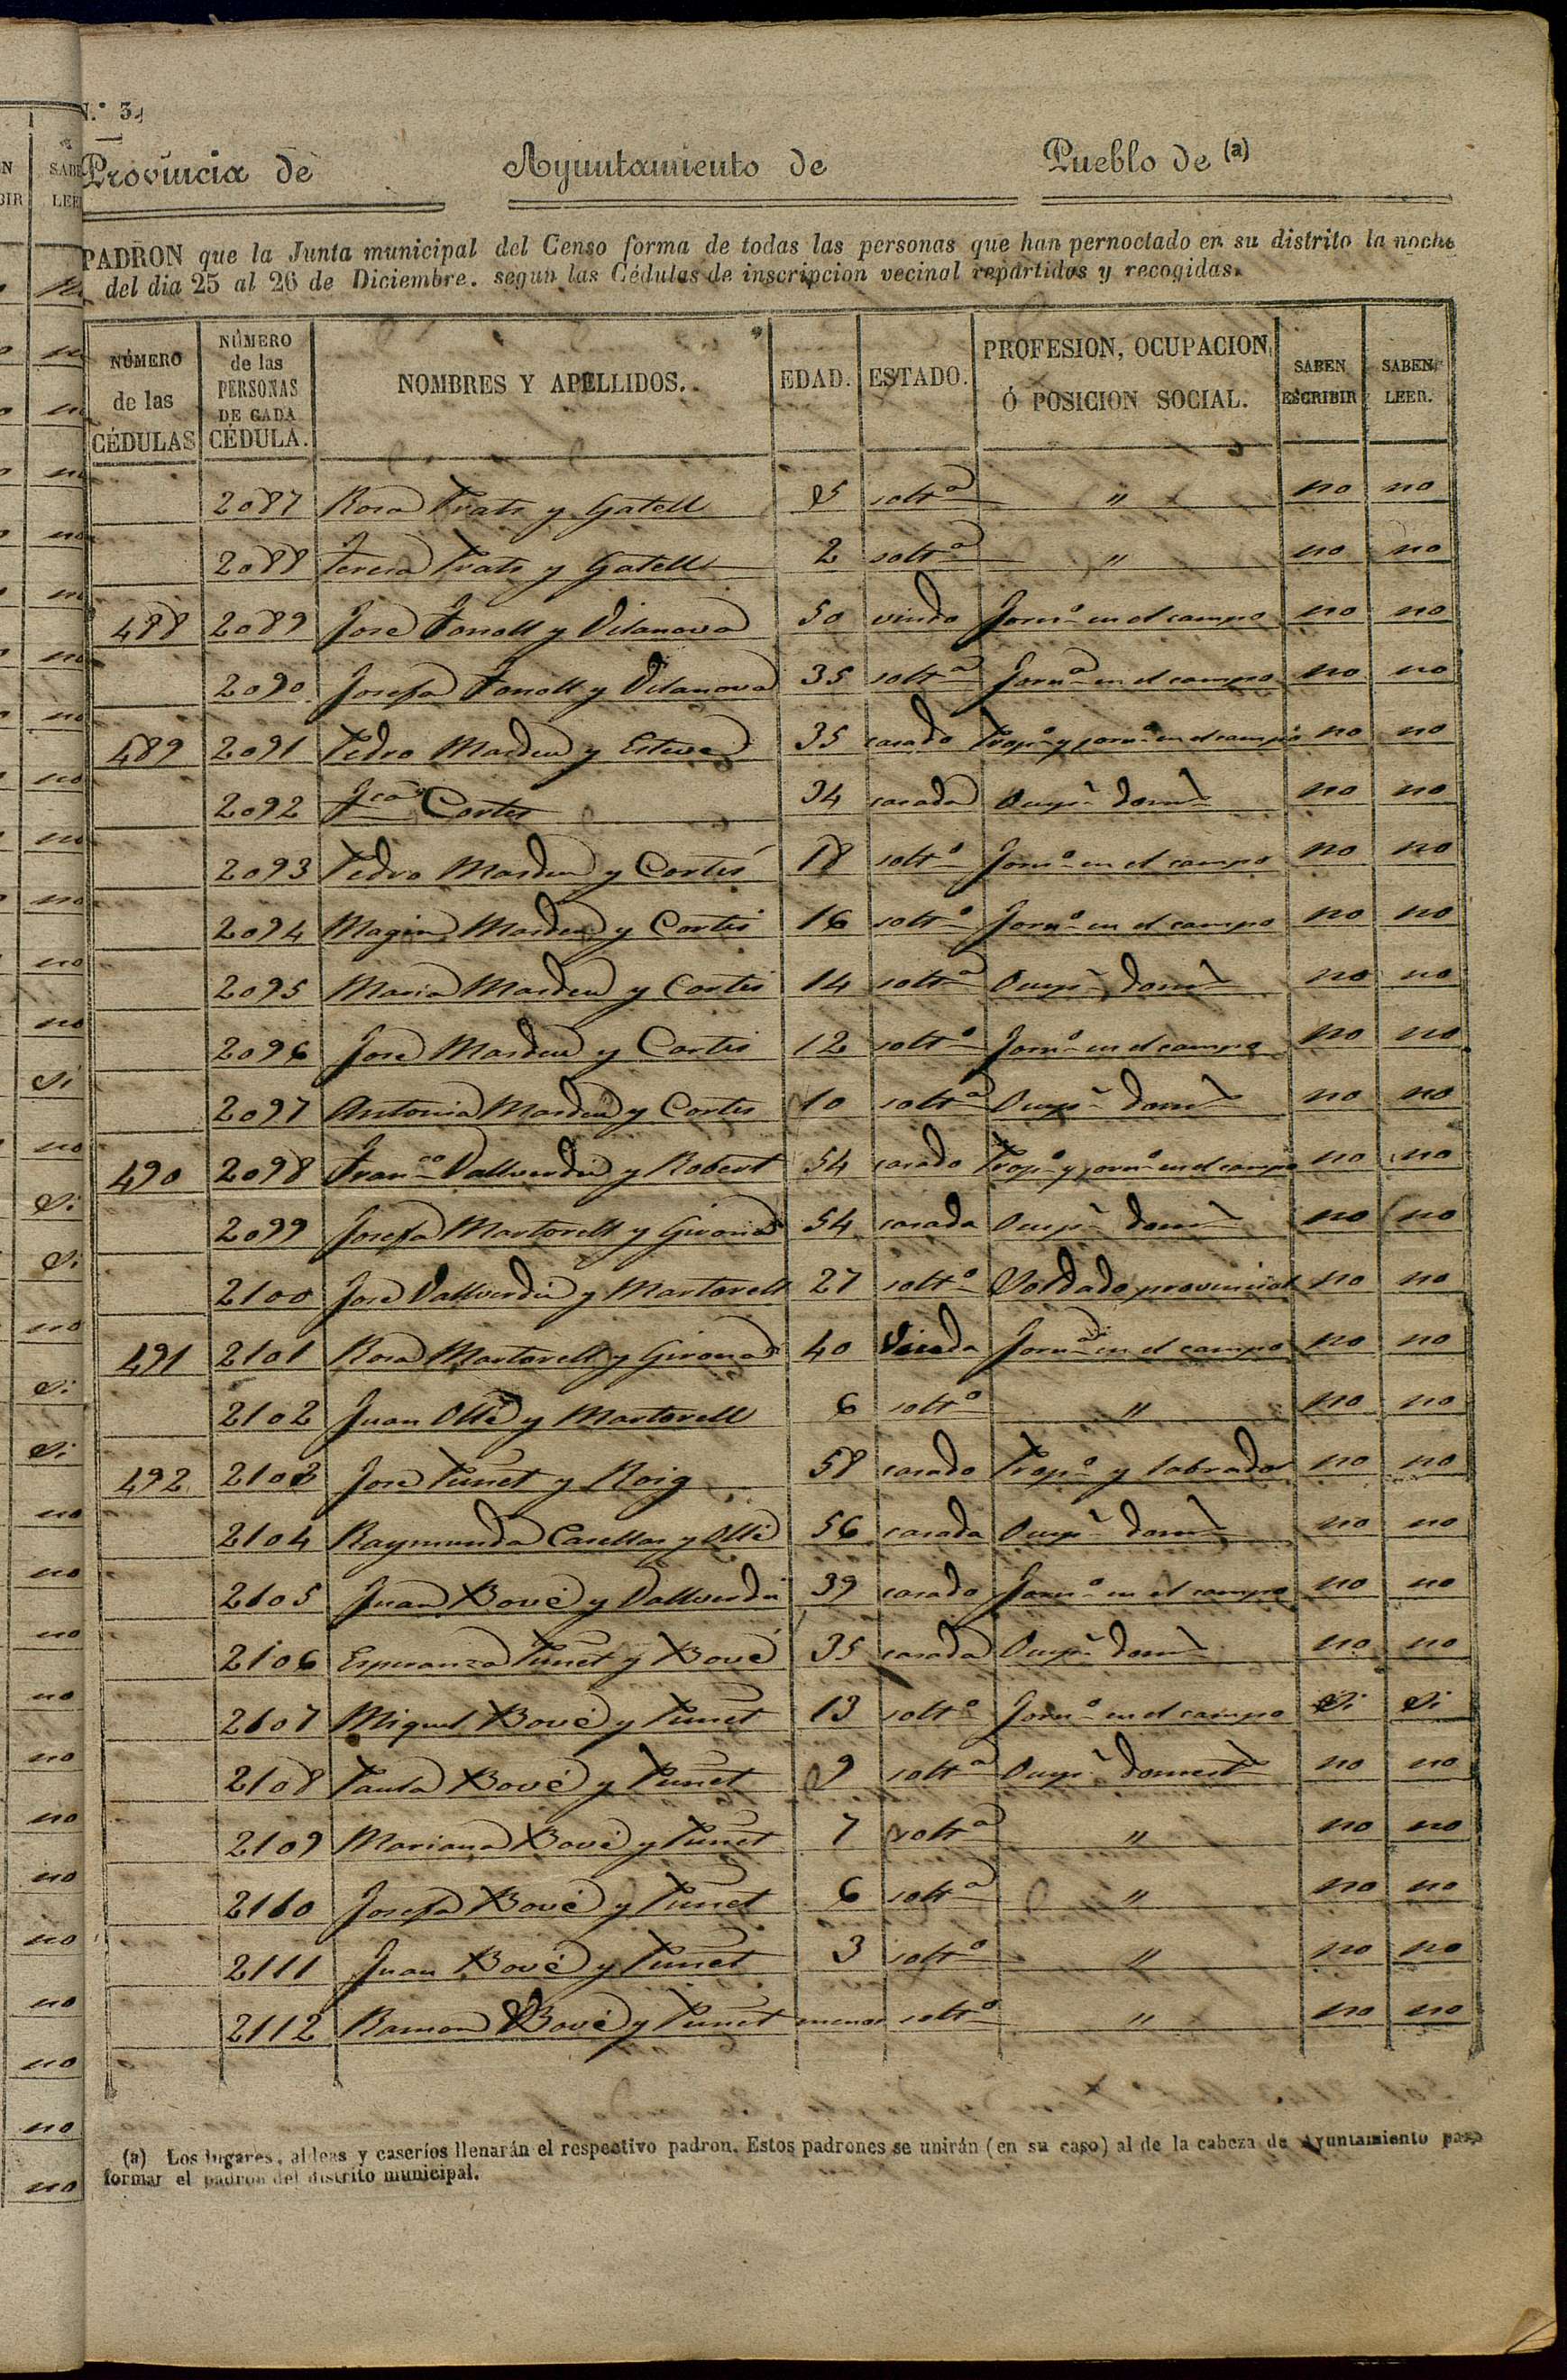 N.º 3.
Provincia de Ayuntamiento de Pueblo de (a)
PADRON que la Junta municipal del Censo forma de todas las personas que han pernoctado en su distrito la noche
del dia 25 al 26 de Diciembre, segun las Cédulas de inscripcion vecinal repartidas y recogidas.
NÚMERO de las CÉDULAS NÚMERO de las PERSONAS DE CADA CÉDULA. NOMBRES Y APELLIDOS. EDAD. ESTADO. PROFESION, OCUPACION, Ó POSICION SOCIAL. SABEN ESCRIBIR SABEN LEER.
2087 Rosa Prats y Gatell 5 soltª " no no
2088 Teresa Prats y Gatell 2 soltª " no no
488 2089 José Fonoll y Vilanova 50 viudo Jornº en el campo no no
2090 Josefa Fonoll y Vilanova 35 soltª Jornª en el campo no no
489 2091 Pedro Mardeu y Esteve 35 casado Propº y jornº en el campo no no
2092 Fcaª Cortes 34 casada Ocupª domª no no
2093 Pedro Mardeu y Cortés 18 soltº Jornº en el campo no no
2094 Magin Mardeu y Cortés 16 soltº Jornº en el campo no no
2095 Maria Mardeu y Cortés 14 soltª Ocupª domª no no
2096 José Mardeu y Cortés 12 soltº Jornº en el campo no no
2097 Antonia Mardeu y Cortes 10 soltª Ocupª domª no no
490 2098 Franco Vallverdú y Robert 54 casado Propº y jornº en el campo no no
2099 Josefa Martorell y Girona 54 casada Ocupª domª no no
2100 José Vallverdú y Martorell 27 soltº Soldado provincial no no
491 2101 Rosa Martorell y Girona 40 Viuda Jornª en el campo no no
2102 Juan Ollé y Martorell 6 soltº " no no
492 2103 José Punet y Roig 58 casado Propº y labrador no no
2104 Raymunda Casellas y Ollé 56 casada Ocupª domª no no
2105 Juan Bové y Vallverdú 39 casado Jornº en el campo no no
2106 Esperanza Punet y Bové 35 casada Ocupª domª no no
2107 Miguel Bové y Punet 13 soltº Jornº en el campo Si Si
2108 Paula Bové y Punet 9 soltª Ocupª domestª no no
2109 Mariana Bové y Punet 7 soltª " no no
2110 Josefa Bové y Punet 6 soltª " no no
2111 Juan Bové y Punet 3 soltº " no no
2112 Ramon Bové y Punet menos soltº " no no
(a) Los lugares, aldeas y caseríos llenarán el respectivo padron. Estos padrones se unirán (en su caso) al de la cabeza de Ayuntamiento para
formar el padron del distrito municipal.